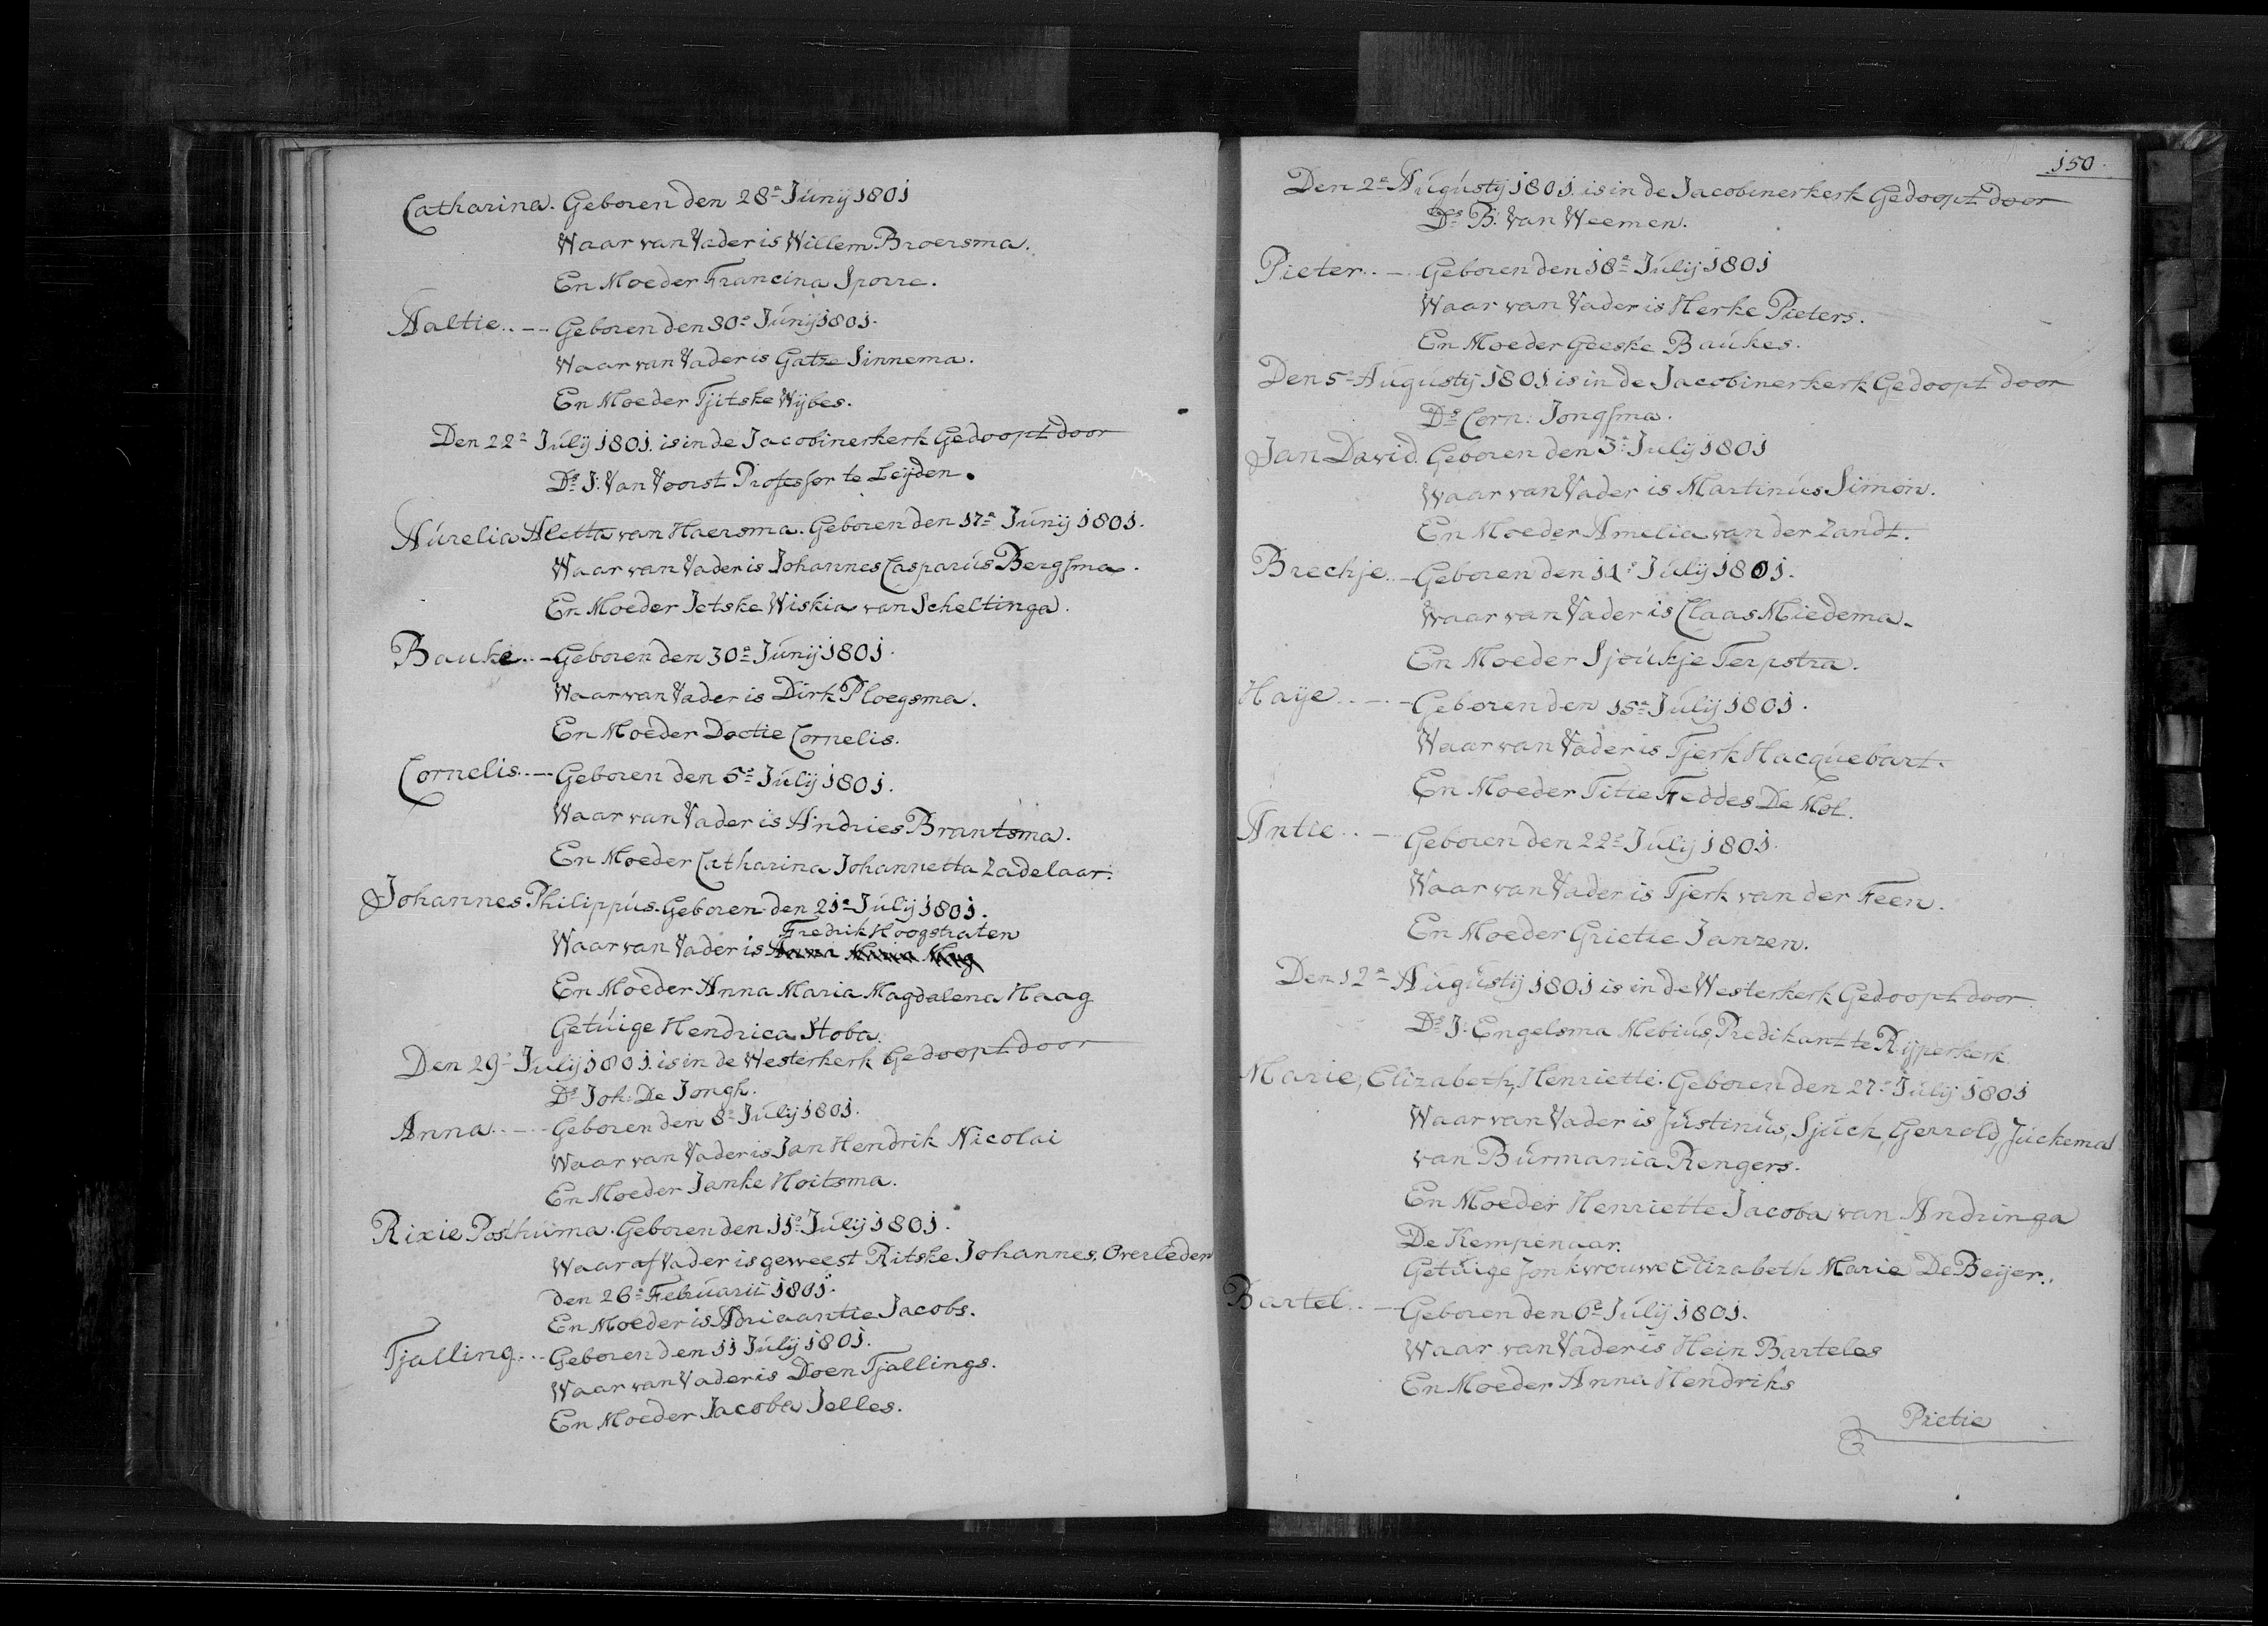 Catharina. Geboren den 28ᵉ Junij 1801
Waar van Vader is Willem Broersma.
En Moeder Francina Sporre.
Aaltie..-- Geboren den 30ᵉ Junij 1801.
Waar van Vader is Gatze Sinnema.
En Moeder Tjitske Wijbes.
Den 22ᵉ Julij 1801. is in de Jacobinerkerk Gedoopt door
Dˢ J: Van Voorst Professor te Leijden.
Aurelia Aletta van Haersma. Geboren den 17ᵉ Junij 1801.
Waar van Vader is Johannes Casparus Bergsma.
En Moeder Jetske Wiskia van Scheltinga.
Bauke..- Geboren den 30ᵉ Junij 1801.
Waar van Vader is Dirk Ploegsma.
En Moeder Doctie Cornelis.
Cornelis..-- Geboren den 5ᵉ Julij 1801.
Waar van Vader is Andries Brantsma.
En Moeder Catharina Johannetta Zadelaar.
Johannes Philippus. Geboren den 21ᵉ Julij 1801.
Fredrik Hoogstraten
Waar van Vader is Anna Maria Mag
En Moeder Anna Maria Magdalena Haag
Getuige Hendrica Stoba.
Den 29ᵉ Julij 1801. is in de Westerkerk Gedoopt door
Dˢ Joh: De Jongh.
Anna..-- Geboren den 8ᵉ Julij 1801.
Waar van Vader is Jan Hendrik Nicolai
En Moeder Janke Hoitsma.
Rixie Posthuma. Geboren den 11ᵉ Julij 1801.
Waar af Vader is geweest Ritske Johannes, Overleden
den 26ᵉ Februarii 1801.
En Moeder is Adriaantie Jacobs.
Tjalling... Geboren den 11 Julij 1801.
Waar van Vader is Doen Tjallings.
En Moeder Jacoba Jelles.
150.
Den 2ᵉ Augustij 1801. is in de Jacobinerkerk Gedoopt door
Dˢ B: Van Weemen.
Pieter..-- Geboren den 18ᵉ Julij 1801
Waar van Vader is Herke Pieters.
En Moeder Geeske Baukes.
Den 5ᵉ Augustij 1801. is in de Jacobinerkerk Gedoopt door
Dˢ Corn: Jongsma.
Jan David. Geboren den 3ᵉ Julij 1801
Waar van Vader is Martinus Simon.
En Moeder Amelia van der Zandt.
Brechje..- Geboren den 11ᵉ Julij 1801.
Waar van Vader is Claas Miedema.
En Moeder Sjoukje Terpstra.
Haije..-- Geboren den 15ᵉ Julij 1801.
Waar van Vader is Tjerk Hacquebart.
En Moeder Titie Feddes De Mol.
Antie..-- Geboren den 22ᵉ Julij 1801.
Waar van Vader is Tjerk van der Feen.
En Moeder Grietie Janzen.
Den 12ᵉ Augustij 1801 is in de Westerkerk Gedoopt door
Dˢ J: Engelsma Mebius, Predikant te Rijperkerk.
Marie, Elizabeth, Henriette. Geboren den 27ᵉ Julij 1801
Waar van Vader is Justinus, Sjuck, Gerrold, Juckema
van Burmania Rengers.
En Moeder Henriette Jacoba van Andringa
De Kempenaar.
Getuige Jonkvrouwe Elizabeth Marie De Beijer.
Bartel..-- Geboren den 6ᵉ Julij 1801.
Waar van Vader is Hein Barteles
En Moeder Anna Hendriks
Pietie